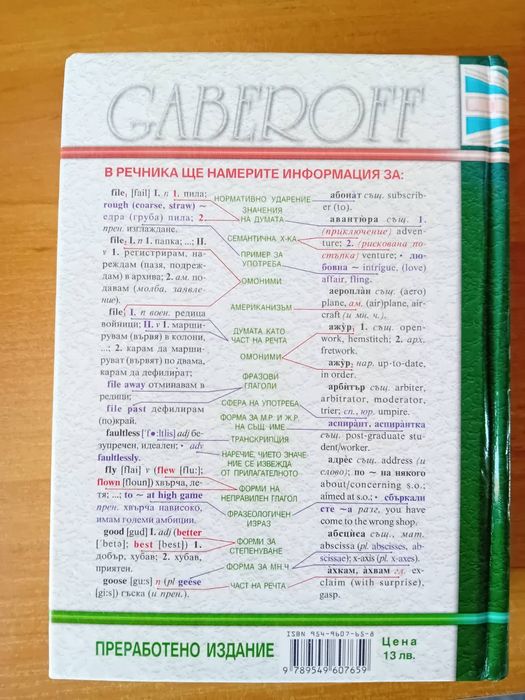 GABEROFF
В РЕЧНИКА ЩЕ НАМЕРИТЕ ИНФОРМАЦИЯ ЗА:
file₁ [fail] I. n 1. пила;
rough (coarse, straw) ~
едра (груба) пила; 2.
прен. изглаждане.
file₂ I. n 1. папка; ...; II.
v 1. регистрирам, нареждам (пазя, подреждам) в архива; 2. ам. подавам (молба, заявление).
file₃ I. n воен. редица
войници; II. v 1. марширувам (вървя) в колони,
...; 2. карам да маршируват (вървят) по двама,
карам да дефилират;
file away отминавам в
редици;
file past дефилирам
(по)край.
faultless ['fɔ:ltlis] adj безупречен, идеален; • adv
faultlessly.
fly [flai] v (flew [flu:];
flown [floun]) хвърча, летя; ...; to ~ at high game
прен. хвърча нависоко,
имам големи амбиции.
good [gud] I. adj (better
['betə]; best [best]) 1.
добър, хубав; 2. хубав,
приятен.
goose [gu:s] n (pl geese
[gi:s]) гъска (и прен.).
НОРМАТИВНО УДАРЕНИЕ
ЗНАЧЕНИЯ
НА ДУМАТА
СЕМАНТИЧНА Х-КА
ПРИМЕР ЗА
УПОТРЕБА
ОМОНИМИ
АМЕРИКАНИЗЪМ
ДУМАТА КАТО
ЧАСТ НА РЕЧТА
ОМОНИМИ
ФРАЗОВИ
ГЛАГОЛИ
СФЕРА НА УПОТРЕБА
ФОРМА ЗА М.Р. И Ж.Р.
НА СЪЩ. ИМЕ
ТРАНСКРИПЦИЯ
НАРЕЧИЕ, ЧИЕТО ЗНАЧЕНИЕ СЕ ИЗВЕЖДА
ОТ ПРИЛАГАТЕЛНОТО
ФОРМИ НА
НЕПРАВИЛЕН ГЛАГОЛ
ФРАЗЕОЛОГИЧЕН
ИЗРАЗ
ФОРМИ ЗА
СТЕПЕНУВАНЕ
ФОРМА ЗА МН.Ч.
ЧАСТ НА РЕЧТА
абона̀т същ. subscriber (to).
авантю̀ра същ. 1.
(приключение) adventure; 2. (рискована постъпка) venture; • любовна ~ intrigue, (love)
affair, fling.
аеропла̀н същ. (aero)
plane, ам. (air)plane, aircraft (и мн. ч.).
ажу̀р₁ 1. същ. openwork, hemstitch; 2. арх.
fretwork.
ажу̀р₂ нар. up-to-date,
in order.
арбѝтър същ. arbiter,
arbitrator, moderator,
trier; сп., юр. umpire.
аспира̀нт, аспира̀нтка
същ. post-graduate student/worker.
адрѐс същ. address (и
слово); по ~ на някого
about/concerning s.o.;
aimed at s.o.; • сбъркали
сте ~а разг, you have
come to the wrong shop.
абсцѝса същ., мат.
abscissa (pl. abscisses, abscissae); x-axis (pl. x-axes).
а̀хкам, а̀хвам гл. exclaim (with surprise),
gasp.
ПРЕРАБОТЕНО ИЗДАНИЕ
ISBN 954-9607-65-8
9 789549 607659
Цена
13 лв.